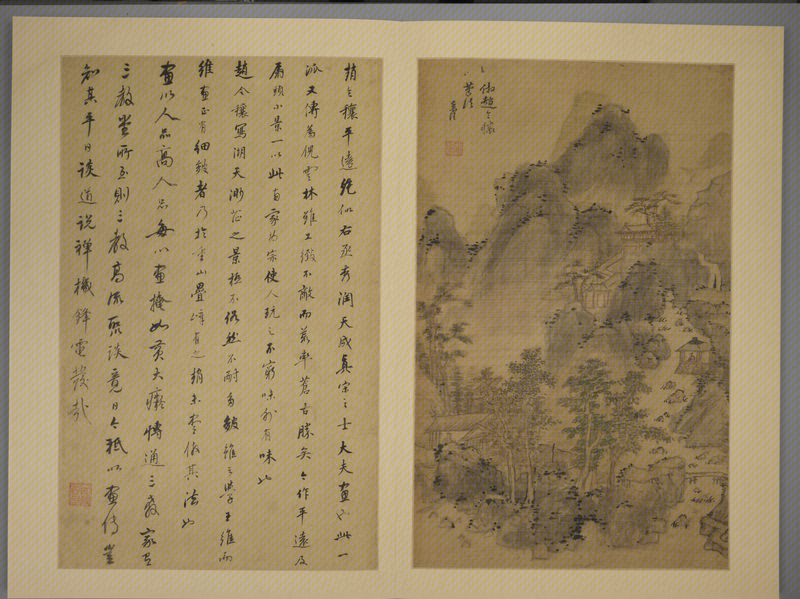 趙令穰平遠絕似右丞秀潤天成真宋之士大夫畫也此一
派又傳為倪雲林雖工緻不敵而荒率蒼古勝矣今作平遠及
扇頭小景一以此兩家為宗使人玩之不窮味外有味也
趙令穰寫湖天渺茫之景極不俗然不耐多皴雖云學王維而
維畫正有細皴者乃於重山疊嶂有之趙未其法也
畫以人品高人品每以畫掩如黃大癡博通三教家立
三教堂所至則三教高流聚談竟日今祇以畫傳豈
知其平日談道說禪機鋒電發哉
倣趙令穰
筆法